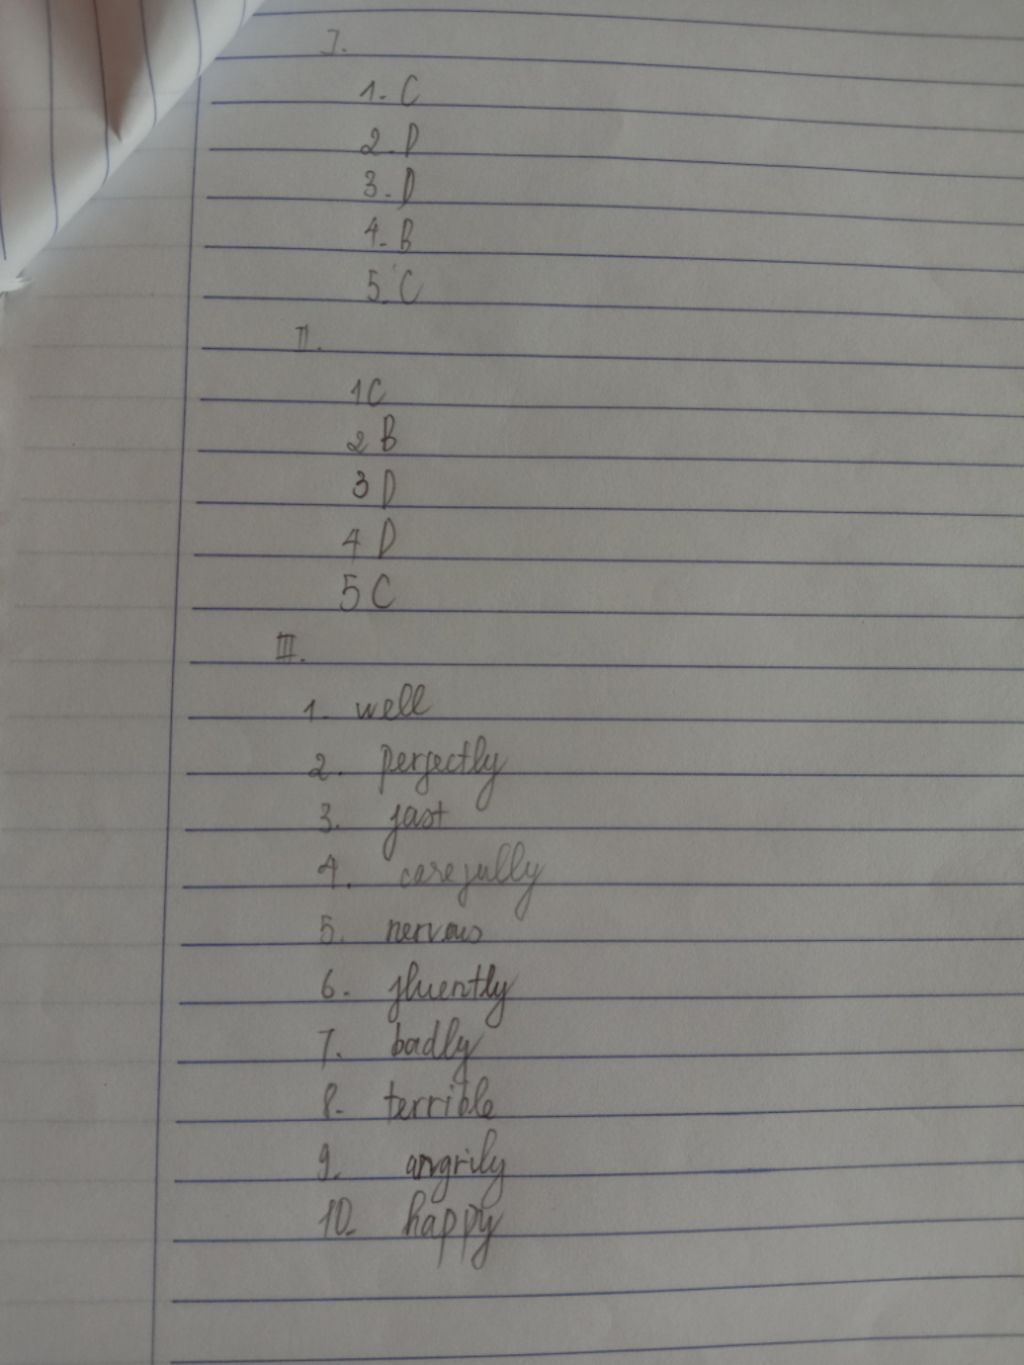 I.
1. C
2. D
3. D
4. B
5. C
II.
1 C
2 B
3 D
4 D
5 C
III.
1. well
2. perfectly
3. fast
4. carefully
5. nervous
6. fluently
7. badly
8. terrible
9. angrily
10. happy